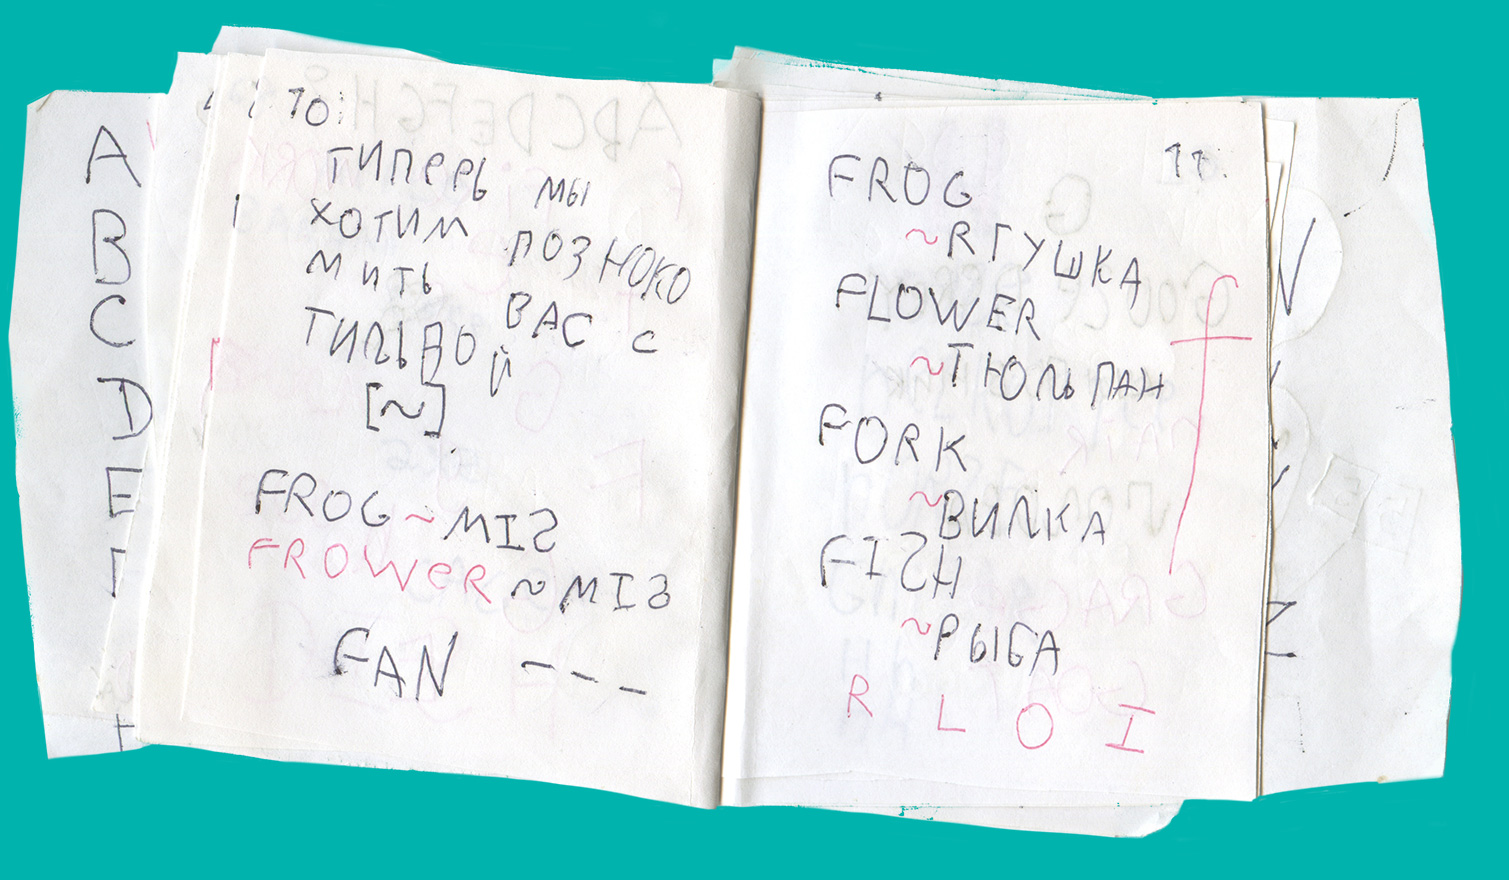 A
B
C
D
E
10.
ТИПЕРЬ МЫ
ХОТИМ ПОЗНОКО
МИТЬ ВАС С
ТИЛЬДОЙ
[~]
FROG ~ MIS
FROWER ~ MIS
FAN ---
11.
FROG
~ЯГУШКА
FLOWER
~ТЮЛЬПАН
FORK
~ВИЛКА
FISH
~РЫБА
f
R L O I